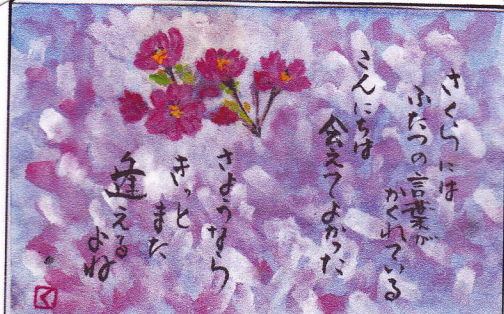 さくらには
ふたつの言葉が
かくれている
こんにちは
会えてよかった
さようなら
きっと
また
逢える
よね